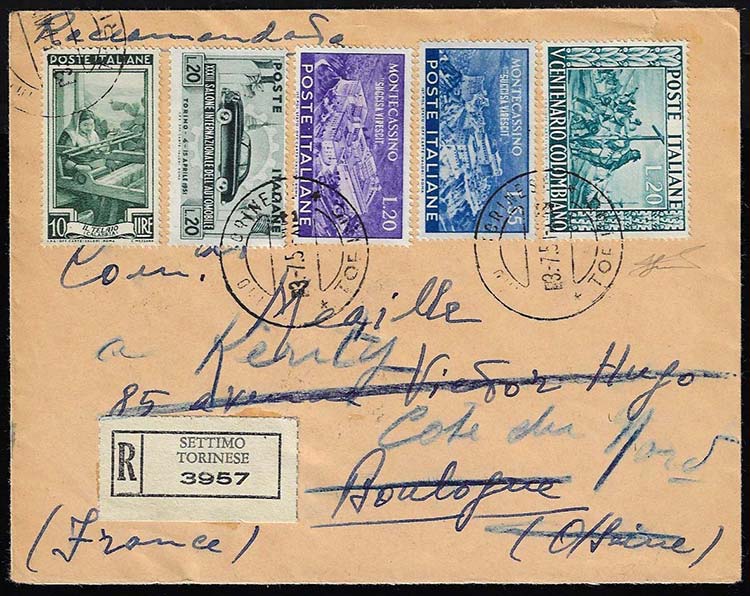 Raccomandata
POSTE ITALIANE
10 LIRE
IL TELAIO
POSTE ITALIANE
L.20 L.20
XXXIII SALONE INTERNAZIONALE DELL'AUTOMOBILE
TORINO · 4-15 APRILE 1951
POSTE ITALIANE
MONTECASSINO
"SUCCISA VIRESCIT"
L.20
POSTE ITALIANE
MONTECASSINO
"SUCCISA VIRESCIT"
L.55
POSTE ITALIANE
V CENTENARIO COLOMBIANO
L.20
3-7-5
3-7-5
Com.
Megille
a Kérity
85 avenue Victor Hugo
Cote du Nord
R
SETTIMO
TORINESE
3957
Boulogne
(France)
(O/Seine)